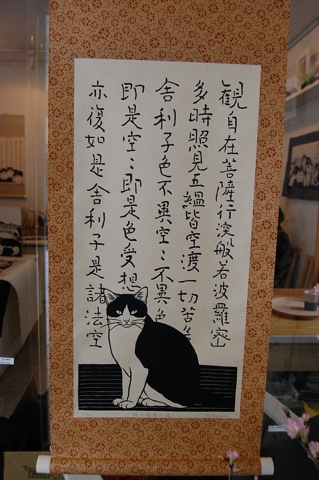 観自在菩薩行深般若波羅密
多時照見五蘊皆空渡一切苦
舎利子色不異空〻不異色
即是空〻即是色受想
亦復如是舎利子是諸法空